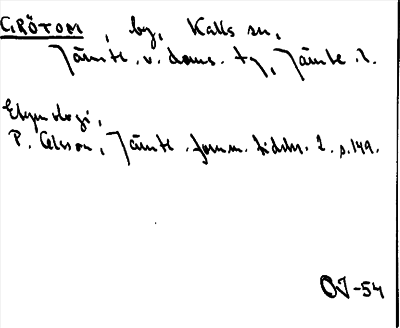 GRÖTOM, by, Kalls sn,
Jämtl. v. doms. tg, Jämtl. l.
Etymologi,
P. Olsson, Jämtl. fornm. tidskr. 2. s. 149.
OJ-54